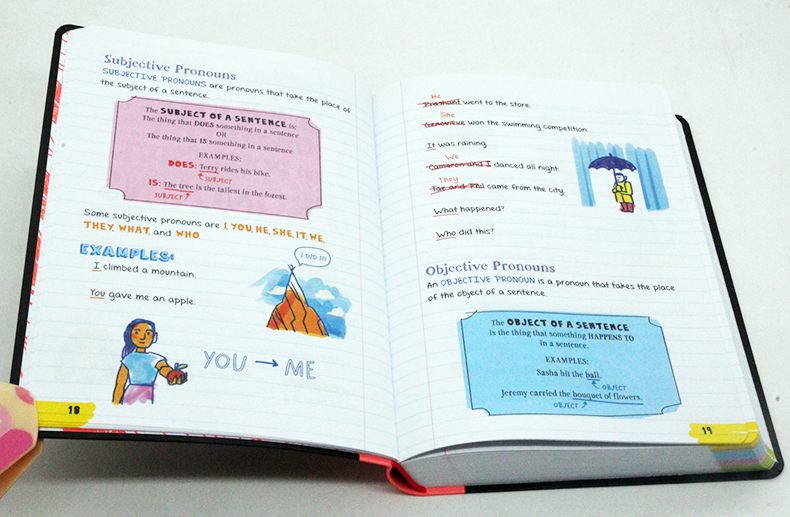 Subjective Pronouns
SUBJECTIVE PRONOUNS are pronouns that take the place of
the subject of a sentence.
The SUBJECT OF A SENTENCE is:
The thing that DOES something in a sentence
OR
The thing that IS something in a sentence
EXAMPLES:
DOES: Terry rides his bike.
SUBJECT
IS: The tree is the tallest in the forest.
SUBJECT
Some subjective pronouns are I, YOU, HE, SHE, IT, WE,
THEY, WHAT, and WHO.
EXAMPLES:
I climbed a mountain.
I DID IT!
You gave me an apple.
YOU → ME
18
He
Prashant went to the store.
She
Genevieve won the swimming competition.
It was raining.
We
Cameron and I danced all night.
They
Tae and Phil came from the city.
What happened?
Who did this?
Objective Pronouns
An OBJECTIVE PRONOUN is a pronoun that takes the place
of the object of a sentence.
The OBJECT OF A SENTENCE
is the thing that something HAPPENS TO
in a sentence.
EXAMPLES:
Sasha hit the ball.
OBJECT
Jeremy carried the bouquet of flowers.
OBJECT
19